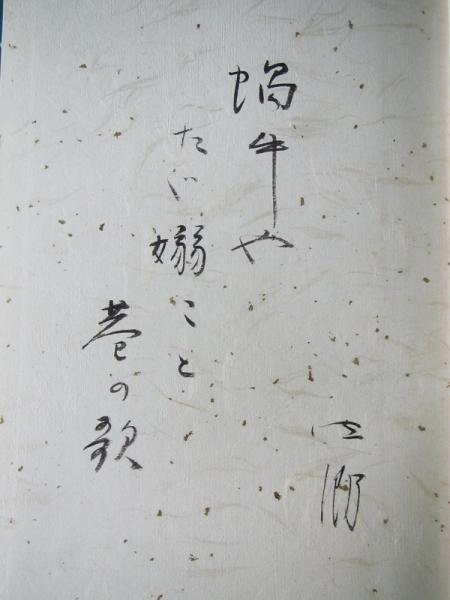 蝸牛や
たゞ嫋こと
巷の歌